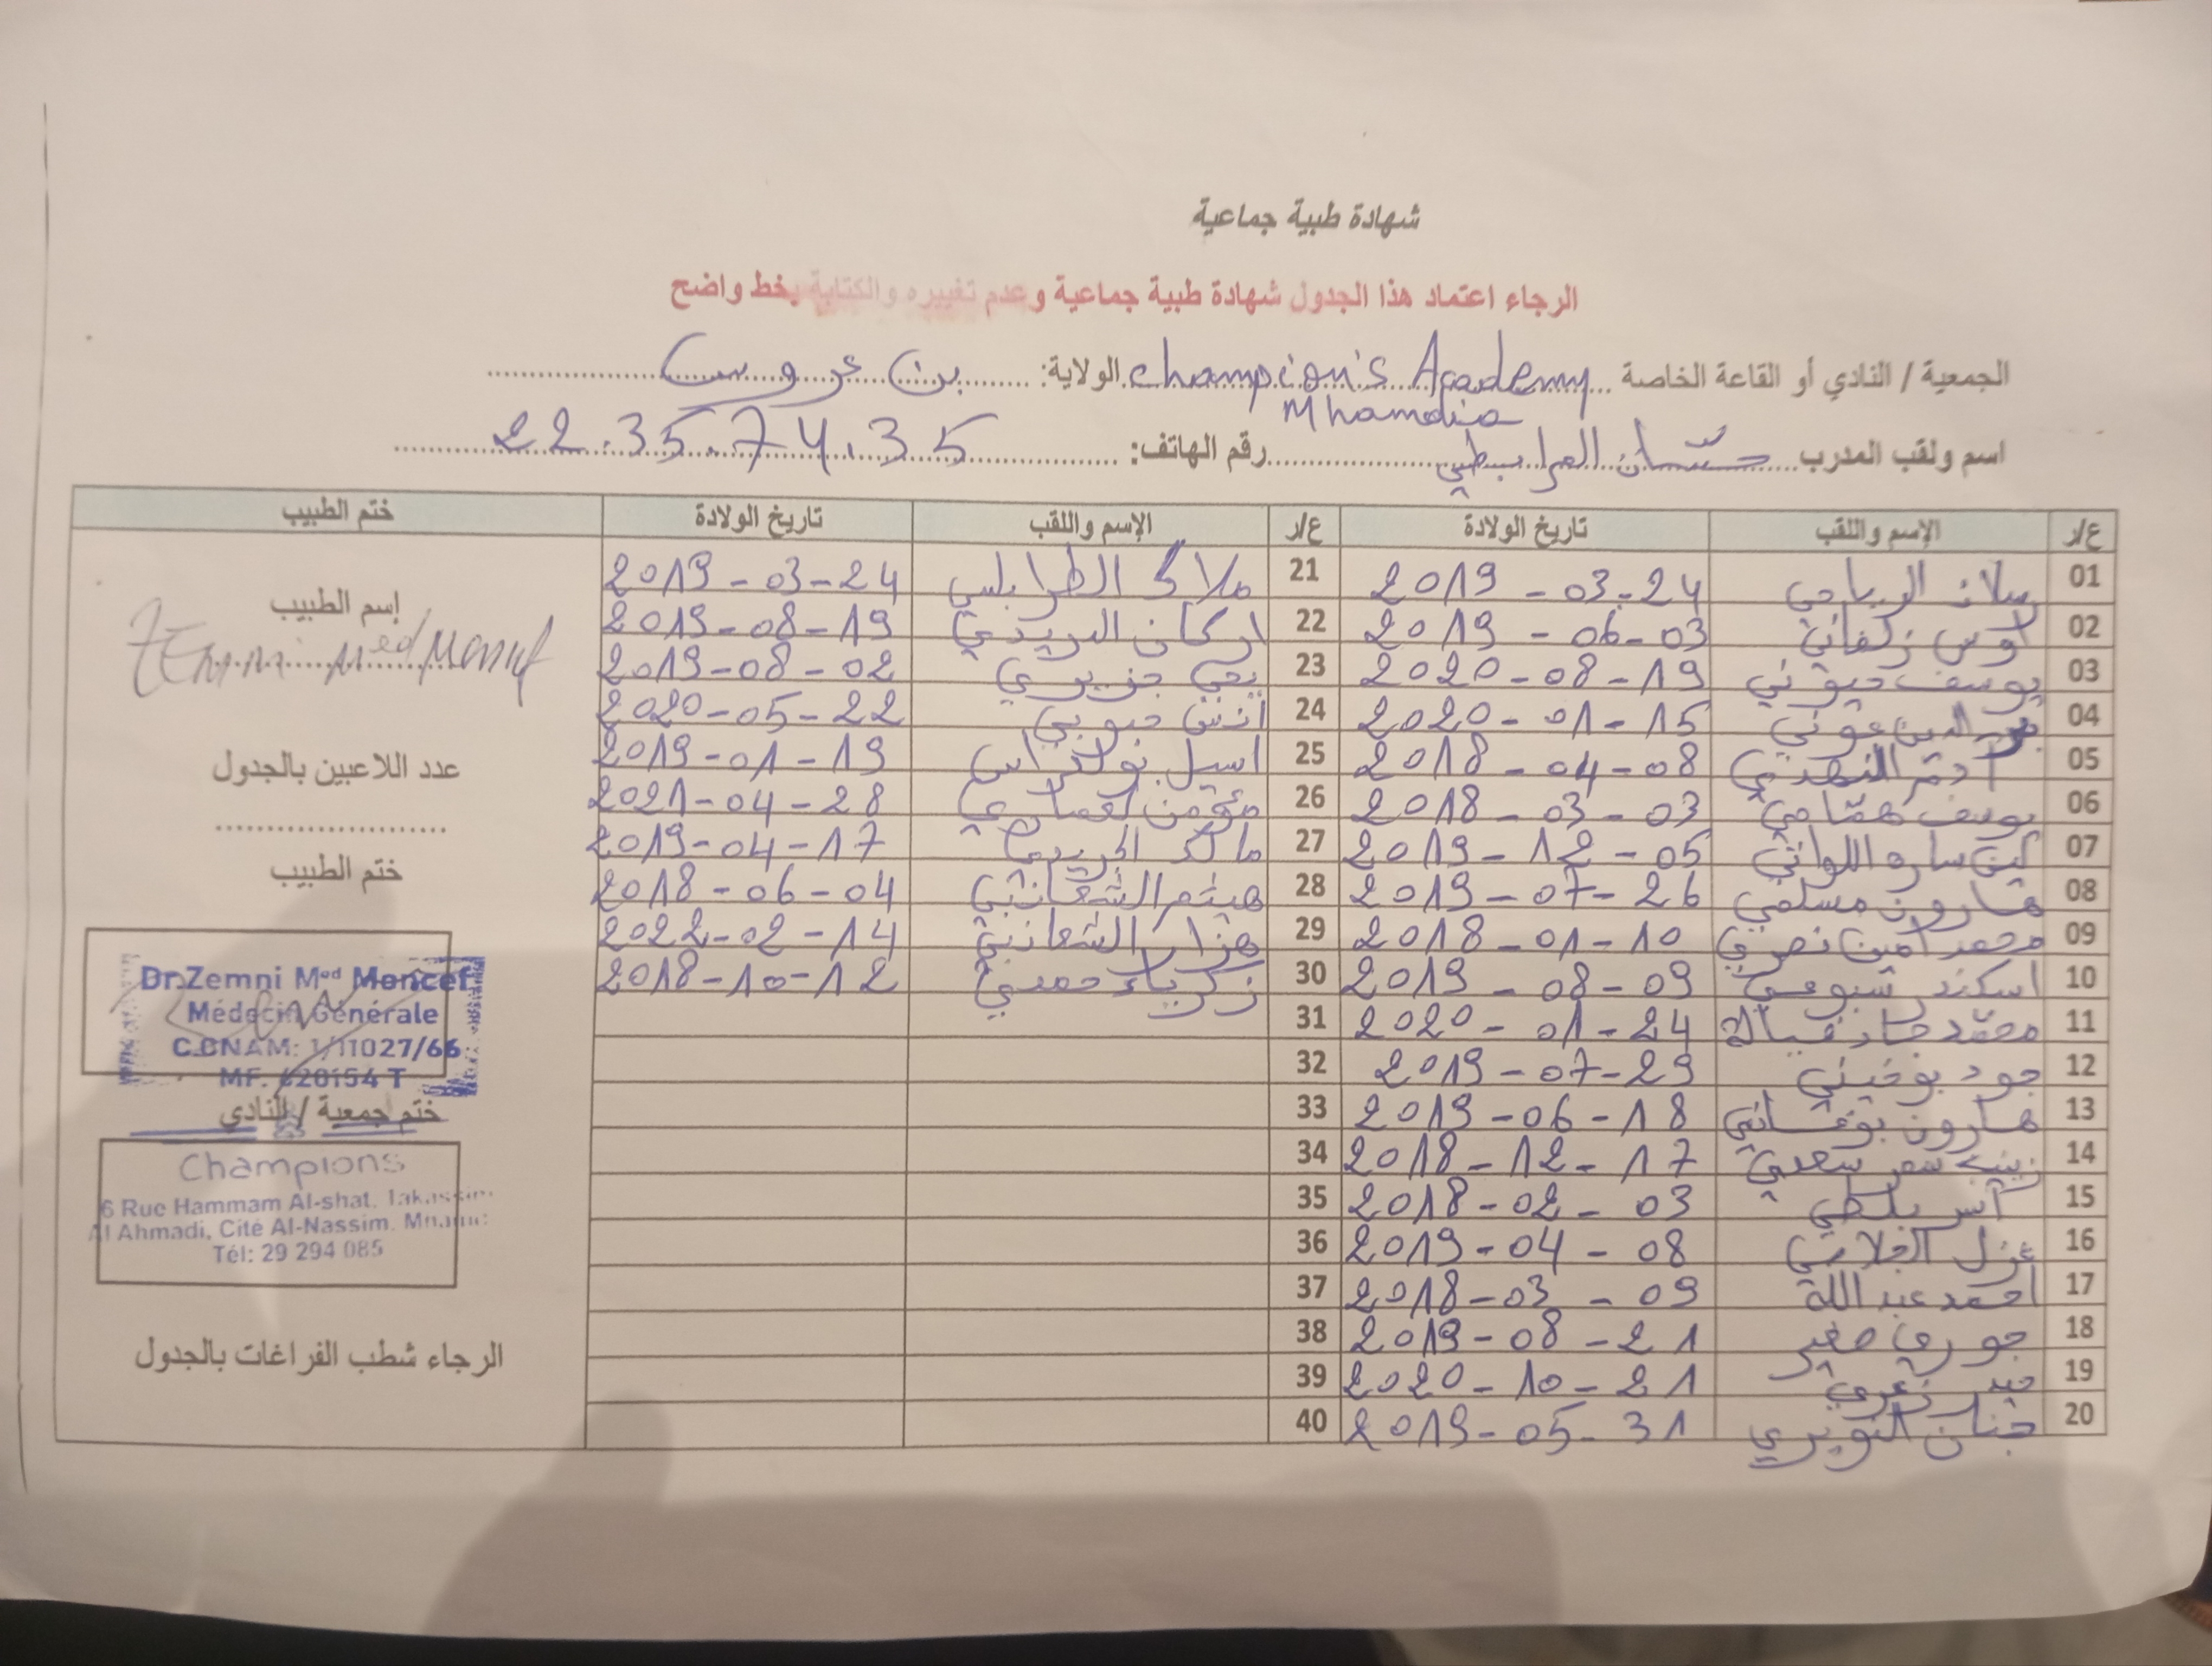 شهادة طبية جماعية
الرجاء اعتماد هذا الجدول شهادة طبية جماعية وعدم تغييره والكتابة بخط واضح
الجمعية / النادي أو القاعة الخاصة Champion's Academy Mhamdia الولاية: بن عروس
اسم ولقب المدرب حسّان المرابطي رقم الهاتف: 22.35.74.35
ع/ر الإسم واللقب تاريخ الولادة ع/ر الإسم واللقب تاريخ الولادة ختم الطبيب
01 الرياحي 2019-03-24 21 ملاك الطرابلسي 2019-03-24
02 أوس زكفاني 2019-06-03 22 اركان الدريدي 2019-08-19
03 يوسف 2020-08-19 23 يحي جزيري 2019-08-02
04 الدين عوني 2020-01-15 24 أنس حبوبي 2020-05-22
05 آدم النهدي 2018-04-08 25 اسيل بولعراس 2019-01-19
06 يوسف همّامي 2018-03-03 26 مؤمن 2021-04-28
07 لين سارة اللواتي 2019-12-05 27 مالك 2019-04-17
08 هارون مسلمي 2019-07-26 28 هيثم الشعانبي 2018-06-04
09 محمد أمين نصري 2018-01-10 29 هزار الشعانبي 2022-02-14
10 اسكندر شبوعي 2019-08-09 30 زكرياء حمدي 2018-10-12
11 محمّد جاد 2020-01-24 31
12 جود بوخيني 2019-07-29 32
13 هارون 2019-06-18 33
14 زينب سعدي 2018-12-17 34
15 آنس بلطي 2018-02-03 35
16 غزل الجلاصي 2019-04-08 36
17 أحمد عبد الله 2018-03-09 37
18 جوري صغير 2019-08-21 38
19 زعري 2020-10-21 39
20 جنان النويري 2019-05-31 40
إسم الطبيب
Zemni Med Moncef
عدد اللاعبين بالجدول
ختم الطبيب
Dr.Zemni Med Moncef
Médecin Générale
C.CNAM: 1/11027/66
MF. 620154 T
ختم جمعية / النادي
Champions
6 Rue Hammam Al-shat. Takassim
Al Ahmadi, Cité Al-Nassim.
Tél: 29 294 085
الرجاء شطب الفراغات بالجدول